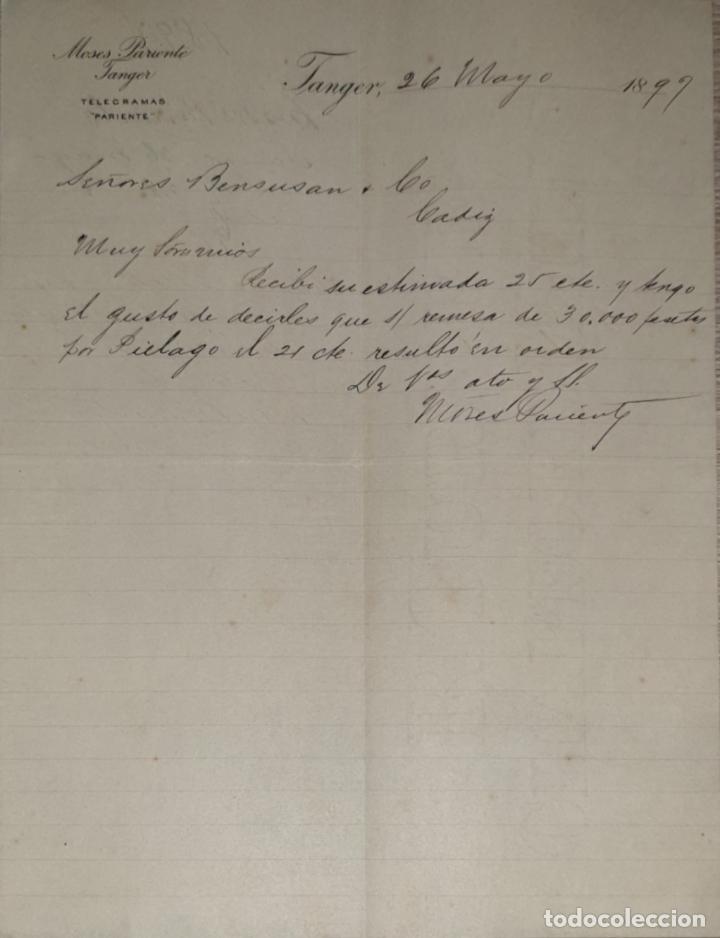 Moses Pariente
Tanger
TELEGRAMAS
"PARIENTE"
Tanger, 26 Mayo 1897
Señores Bensusan & Co
Cadiz
Muy Sres mios
Recibi su estimada 25 cte. y tengo
el gusto de decirles que s/ remesa de 30.000 pesetas
por Pielago el 21 cte. resultó en orden
De Vds ato y SS.
Moses Pariente
todocoleccion